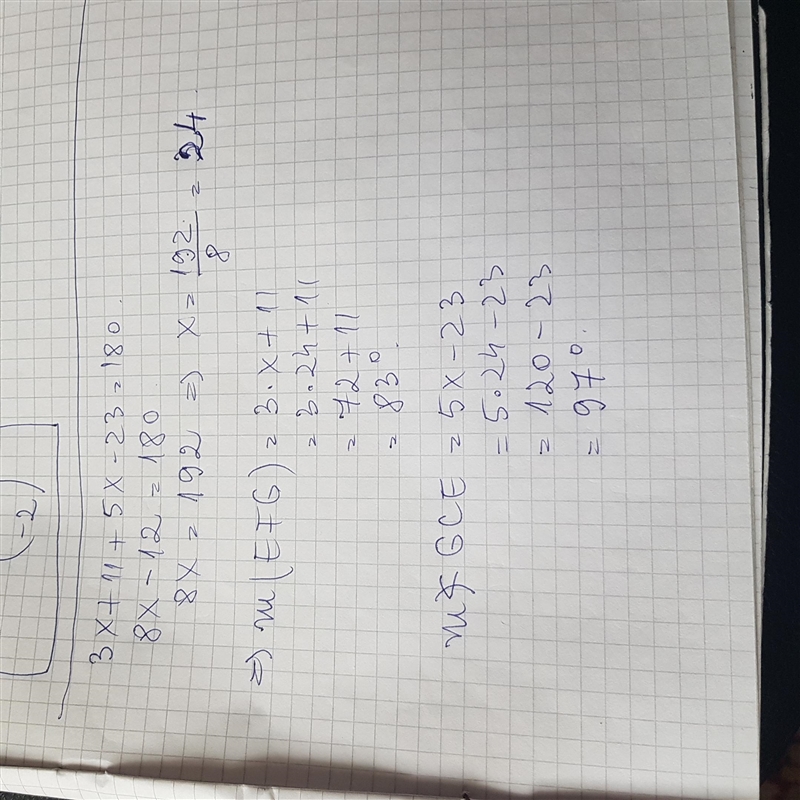 -2)
3x + 11 + 5x - 23 = 180.
8x - 12 = 180
8x = 192 => x = 192/8 = 24
=> m(EFG) = 3·x + 11
= 3·24 + 11
= 72 + 11
= 83°.
m∢ GCE = 5x - 23
= 5·24 - 23
= 120 - 23
= 97°.